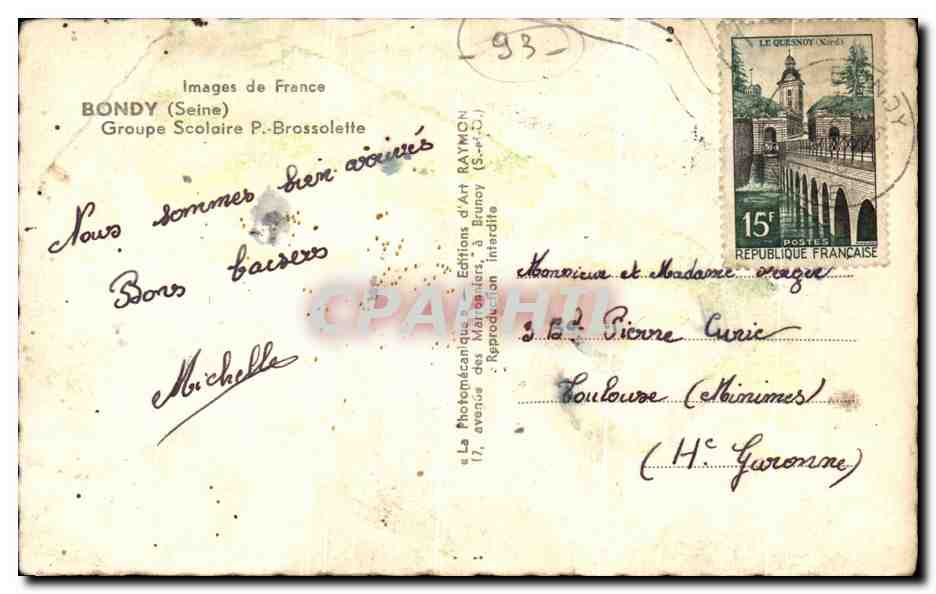 - 93 -
Images de France
BONDY (Seine)
Groupe Scolaire P.-Brossolette
Nous sommes bien arrivés
Bons baisers
Michelle
« La Photomécanique » - Editions d'Art RAYMON
17, avenue des Marronniers, à Brunoy (S.-et-O.)
Reproduction interdite
LE QUESNOY (Nord)
15F
POSTES
REPUBLIQUE FRANÇAISE
Monsieur et Madame
3 Bd Pierre Curie
Toulouse (Minimes)
(Hte Garonne)
CPARHIL